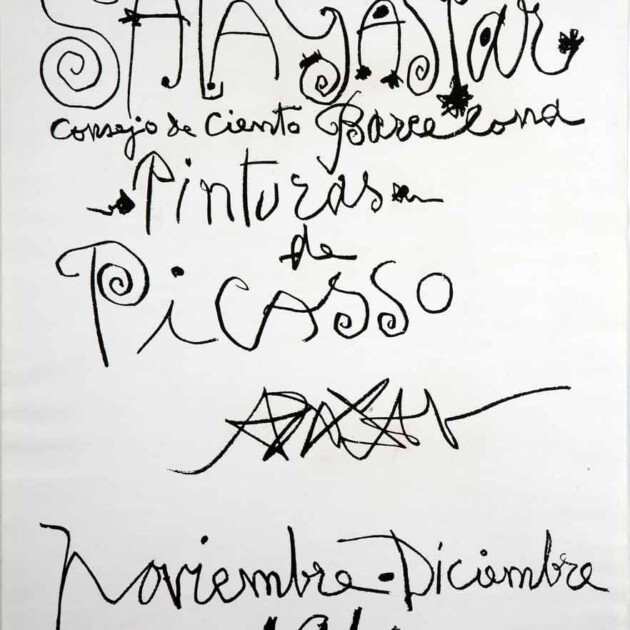 SALA GASpar
Consejo de Ciento Barcelona
Pinturas
de
Picasso
Noviembre-Diciembre